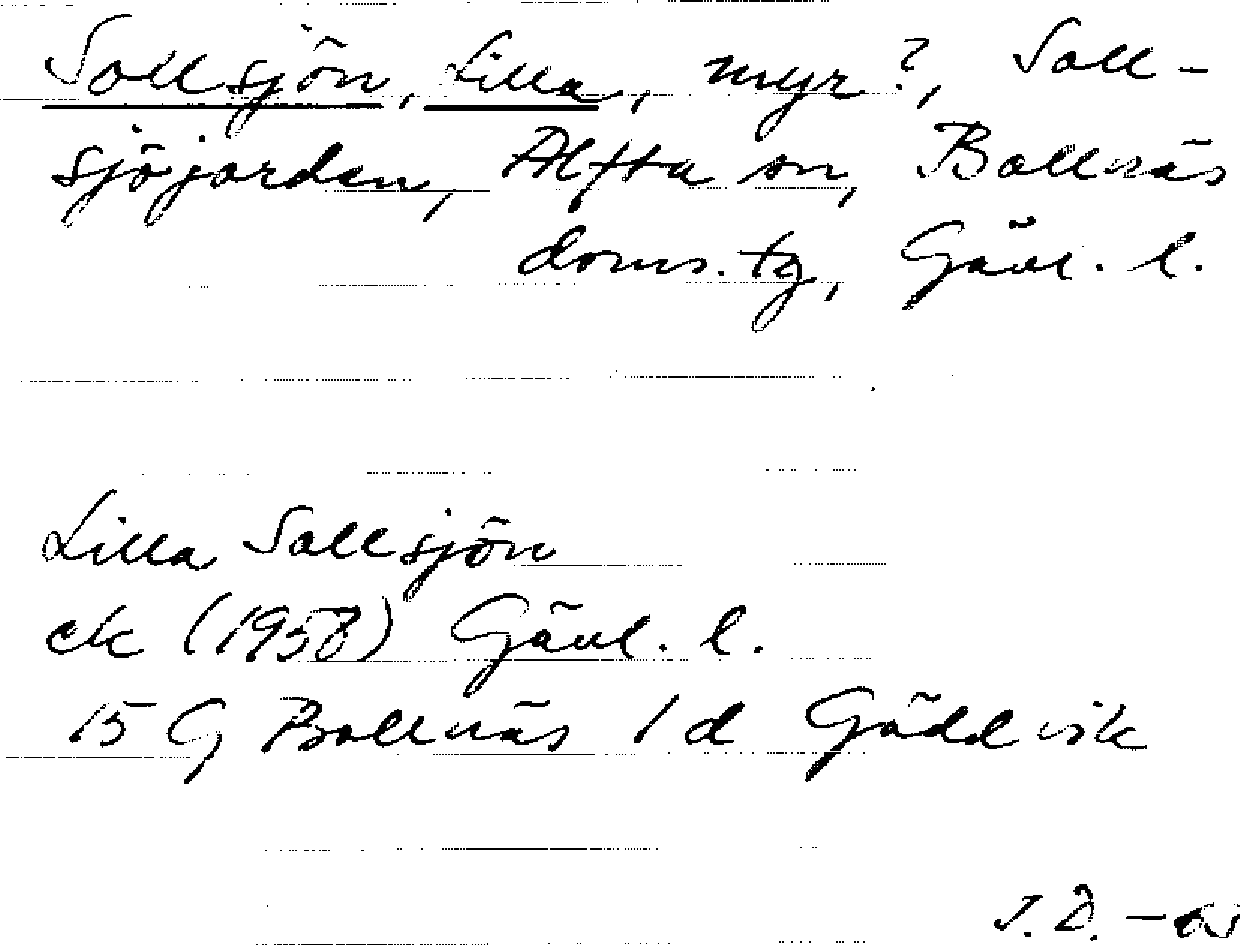 Sollsjön, Lilla, myr?, Soll-
sjöjorden, Alfta sn, Bollnäs
doms.tg, Gävl. l.
Lilla Sollsjön
ek (1958) Gävl. l.
15 G Bollnäs 1 d Gäddvik